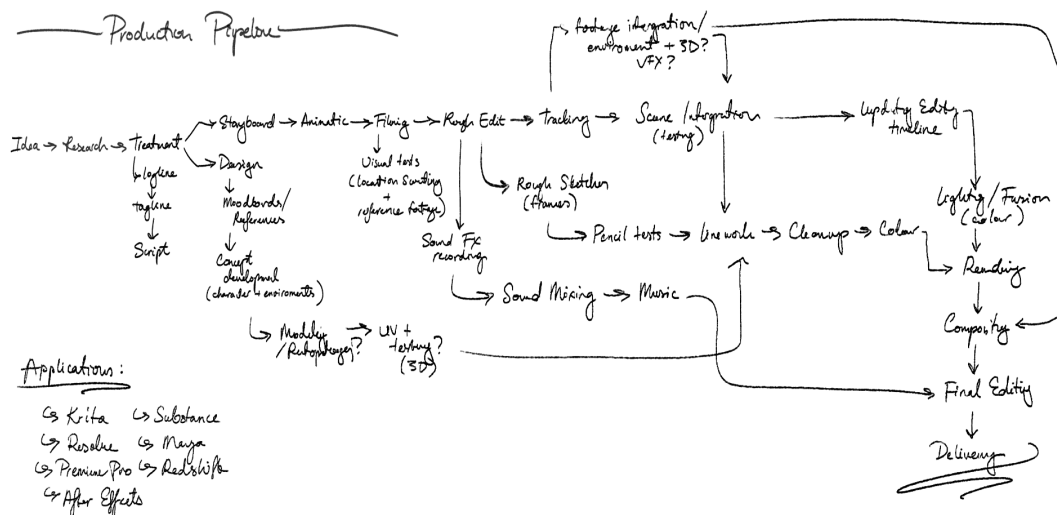 Production Pipeline
footage integration/
enviroment + 3D?
VFX?
Storyboard → Animatic → Filming → Rough Edit → Tracking → Scene Integration
(testing)
Updating Editing
timeline
Idea → Research → Treatment
Logline
tagline
Script
Design
Moodboards/
References
Concept
development
(character + enviroments)
Modeling
/Retopology?
UV +
texturing?
(3D)
Visual tests
(location scouting
+
reference footage)
Sound FX
recording
Rough Sketches
(frames)
Pencil tests → Linework → Cleanup → Colour
Sound Mixing → Music
Lighting/Fusion
(colour)
Rendering
Compositing
Final Editing
Delivery
Applications:
↪ Krita ↪ Substance
↪ Resolve ↪ Maya
↪ Premiere Pro ↪ Redshift
↪ After Effects